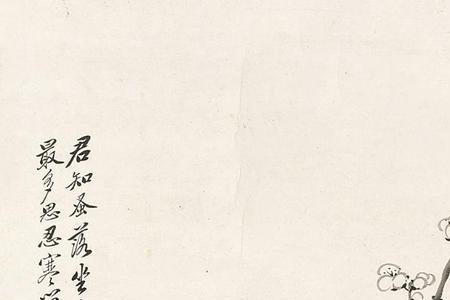 君知蚤落坐
最多思忍寒